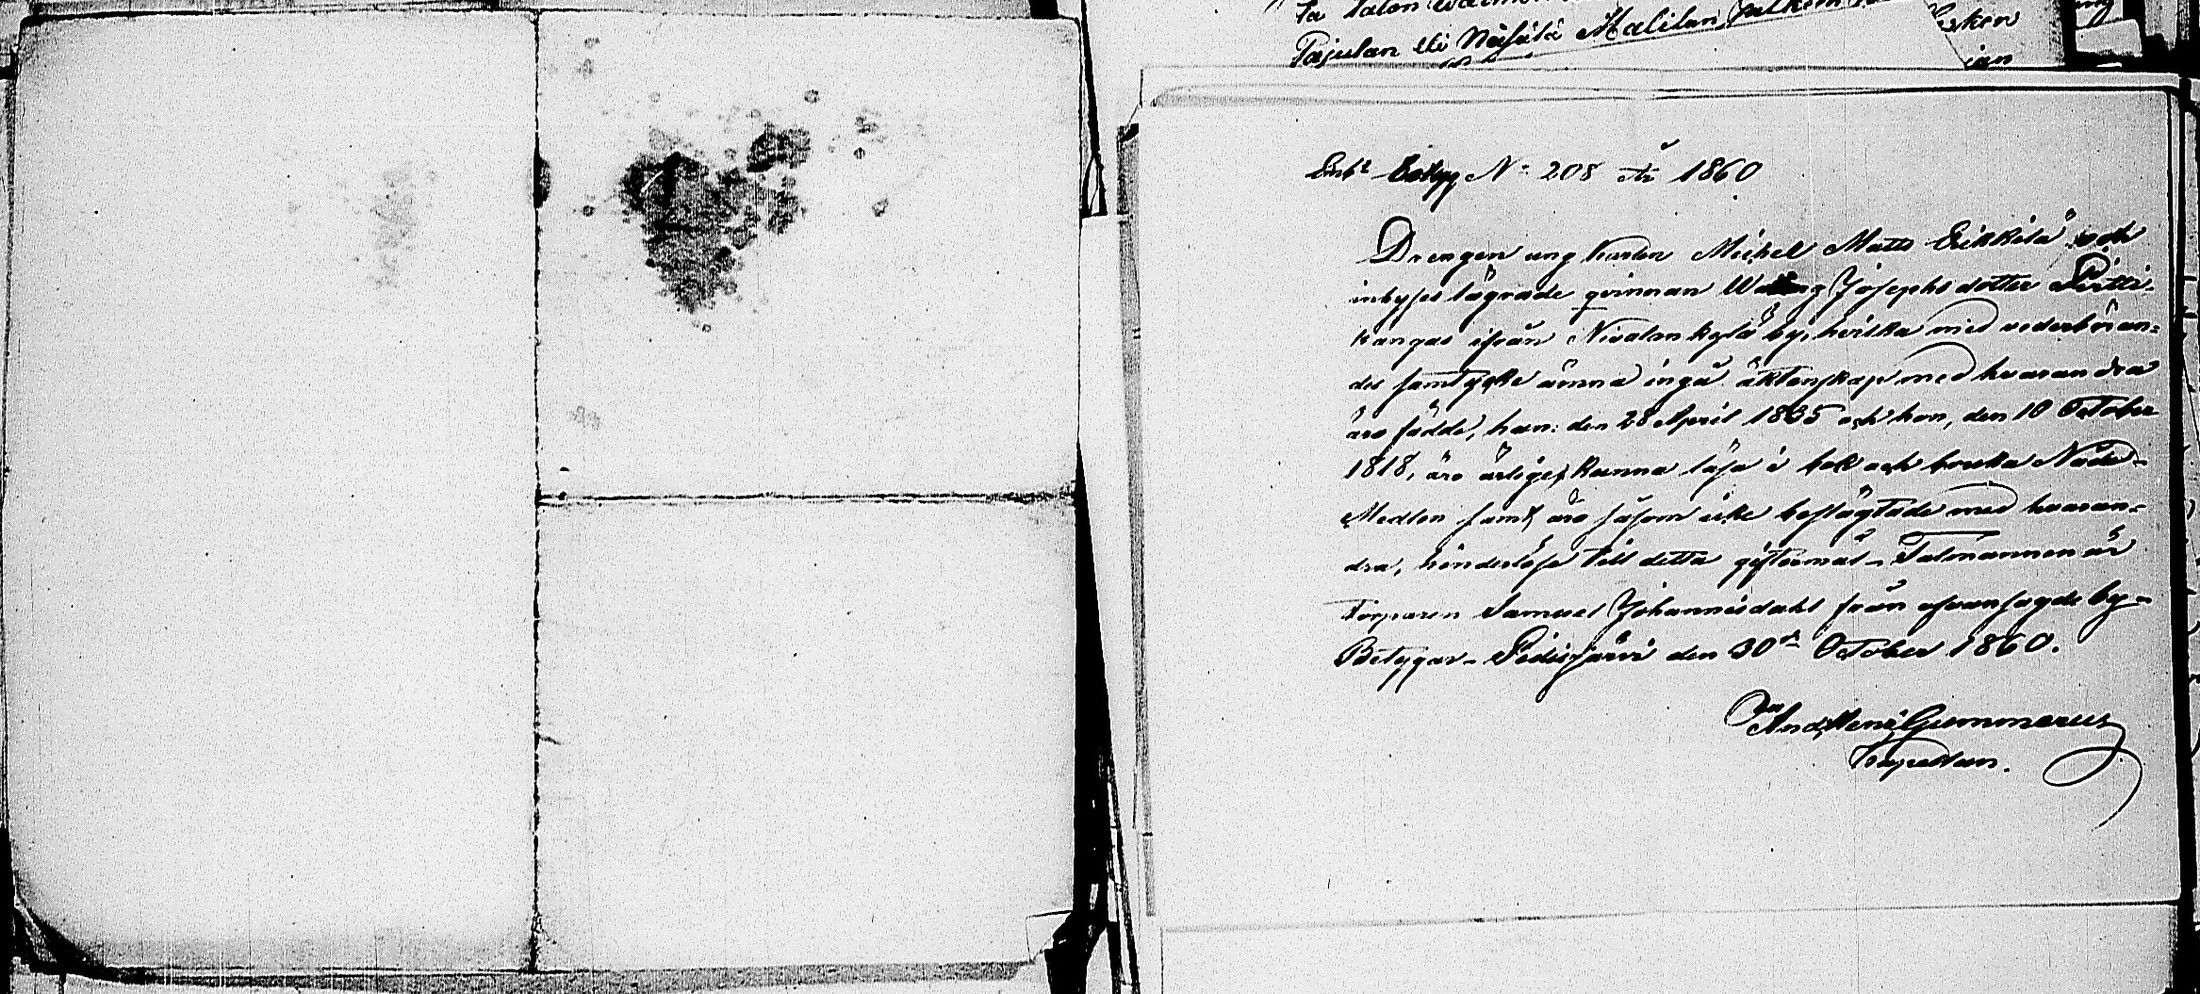 Pajulan eli Näsälä Malilan
N: 208 år 1860
Drengen ung karlen Michel Matts Erikkilä och
inhyses lägrade qvinnan Josephsdotter Pirtti-
kangas ifrån Nivalankylä by, hvilka med vederböran-
des samtycke ämna ingå äktenskap med hvarandra
äro födde, han: den 28 April 1835 och hon, den 10 October
1818, äro ärlige, kunna läsa i bok och bruka Nåde-
Medlen samt äro såsom icke beslägtade med hvaran-
dra, hinderlöse till detta giftermål. Talmannen är
Torparen Samuel Johannis dahl från ofvansagde by.
Betygar. Pidisjärvi den 30 October 1860.
And. Henr. Gummerus
Kapellan.